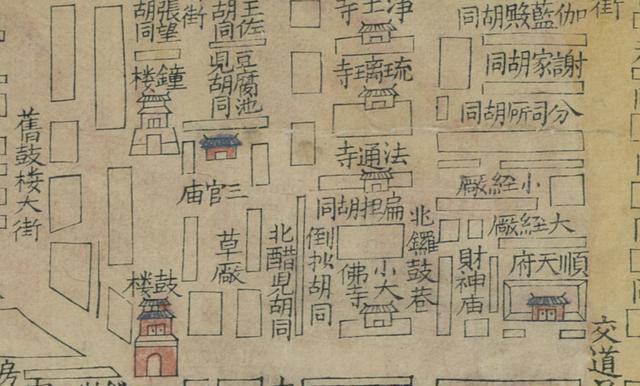 張望
胡同
街
王佐
胡同
净土寺
伽藍殿胡同
街
鐘楼
豆腐池
児胡同
琉璃寺
謝家胡同
分司所胡同
舊鼓楼大街
三官庙
法通寺
小經廠
大經廠
扁担胡同
北鑼鼓巷
草廠
北醋児胡同
倒抄胡同
小大
佛寺
財神庙
順天府
鼓楼
交道
房